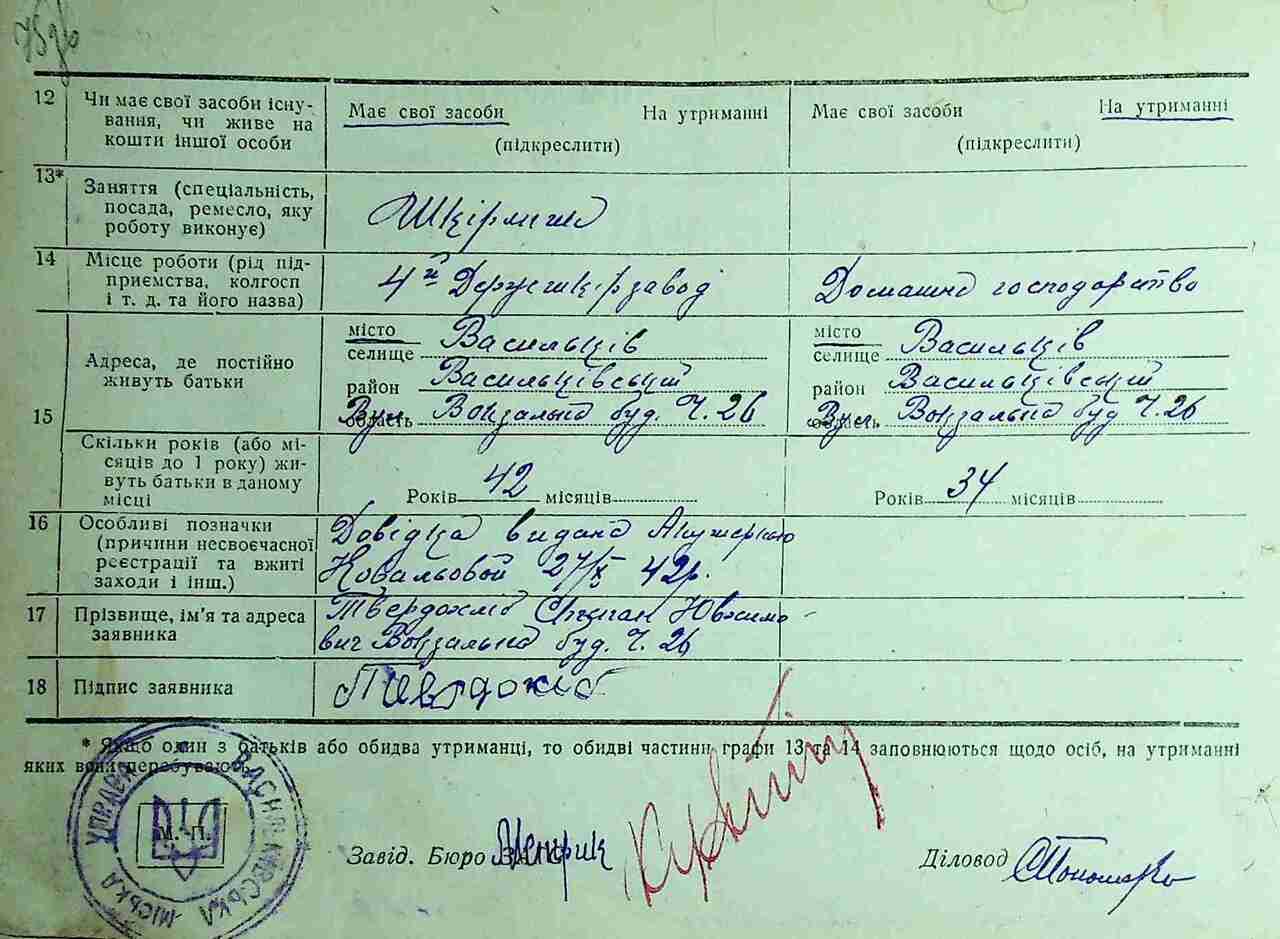 12 Чи має свої засоби існу-
вання, чи живе на
кошти іншої особи
Має свої засоби На утриманні
(підкреслити)
Має свої засоби На утриманні
(підкреслити)
13* Заняття (спеціальність,
посада, ремесло, яку
роботу виконує)
14 Місце роботи (рід під-
приємства, колгосп
і т. д. та його назва)
4й Держшкірзавод
Домашнє господарство
15 Адреса, де постійно
живуть батьки
місто Васильків
селище
район Васильківський
область Вул. Вокзальна буд. Ч. 26
місто Васильків
селище
район Васильківський
область Вул. Вокзальна буд Ч. 26
Скільки років (або мі-
сяців до 1 року) жи-
вуть батьки в даному
місці
Років 42 місяців
Років 34 місяців
16 Особливі позначки
(причини несвоєчасної
реєстрації та вжиті
заходи і інш.)
Довідка видана Акушеркою
Ковальовой 27/X 42р.
17 Прізвище, ім'я та адреса
заявника
Твердохліб СтепанЮвхимо-
вич Вокзальна буд. Ч. 26
18 Підпис заявника
Твердохліб
* Якщо один з батьків або обидва утриманці, то обидві частини графи 13 та 14 заповнюються щодо осіб, на утриманні
яких вони перебувають.
ВАСИЛЬКІВСЬКА МІСЬКА УПРАВА
М. П.
Завід. Бюро ЗАГС
Діловод Пономарко